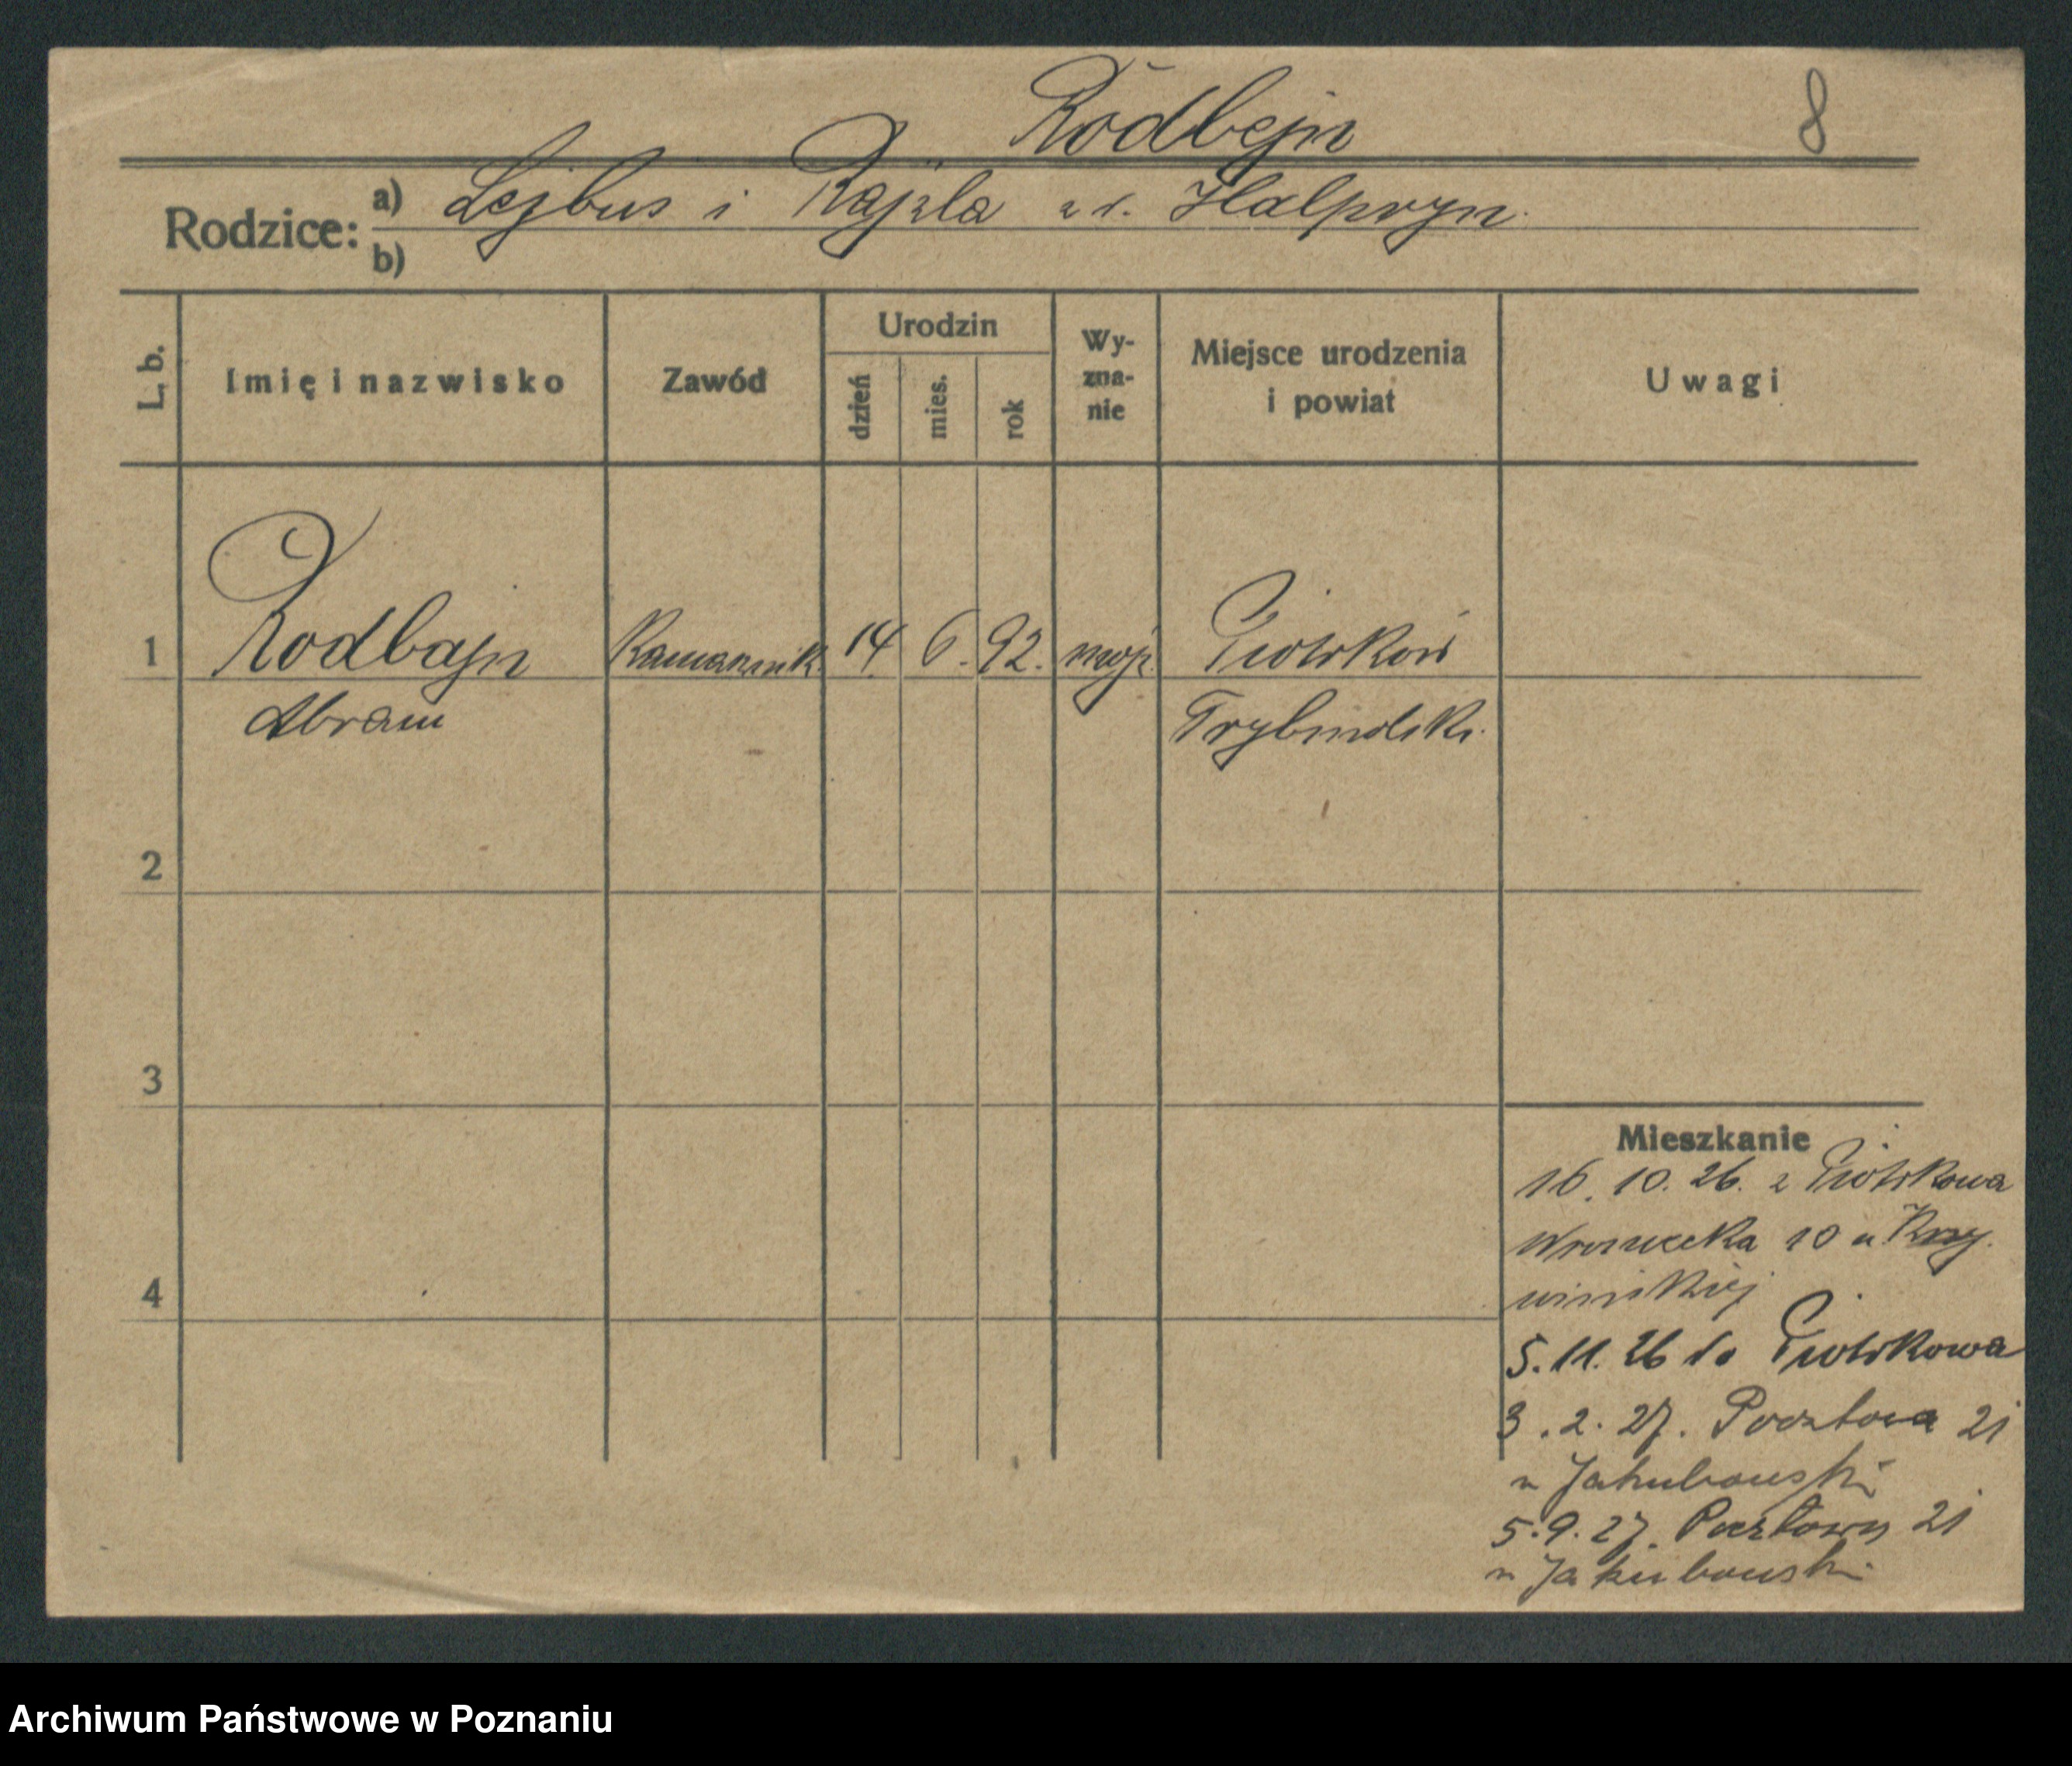 Rödbejn 8
Rodzice: a) Lejbus i Rajzla z d. Halpryn
b)
L. b. Imię i nazwisko Zawód Urodzin dzień mies. rok Wy-
zna-
nie Miejsce urodzenia
i powiat Uwagi
1 Rodbajn Kamasznik. 14. 6. 92. mojż. Piotrków
Abram Trybunalski
2
3
4
Mieszkanie
16. 10. 26. z Piotrkowa
Wroniecka 10 u
5. 11. 26 do Piotrkowa
3. 2. 27. Pocztowa 21
u Jakubowski
5. 9. 27. Pocztowa 21
u Jakubowski
Archiwum Państwowe w Poznaniu